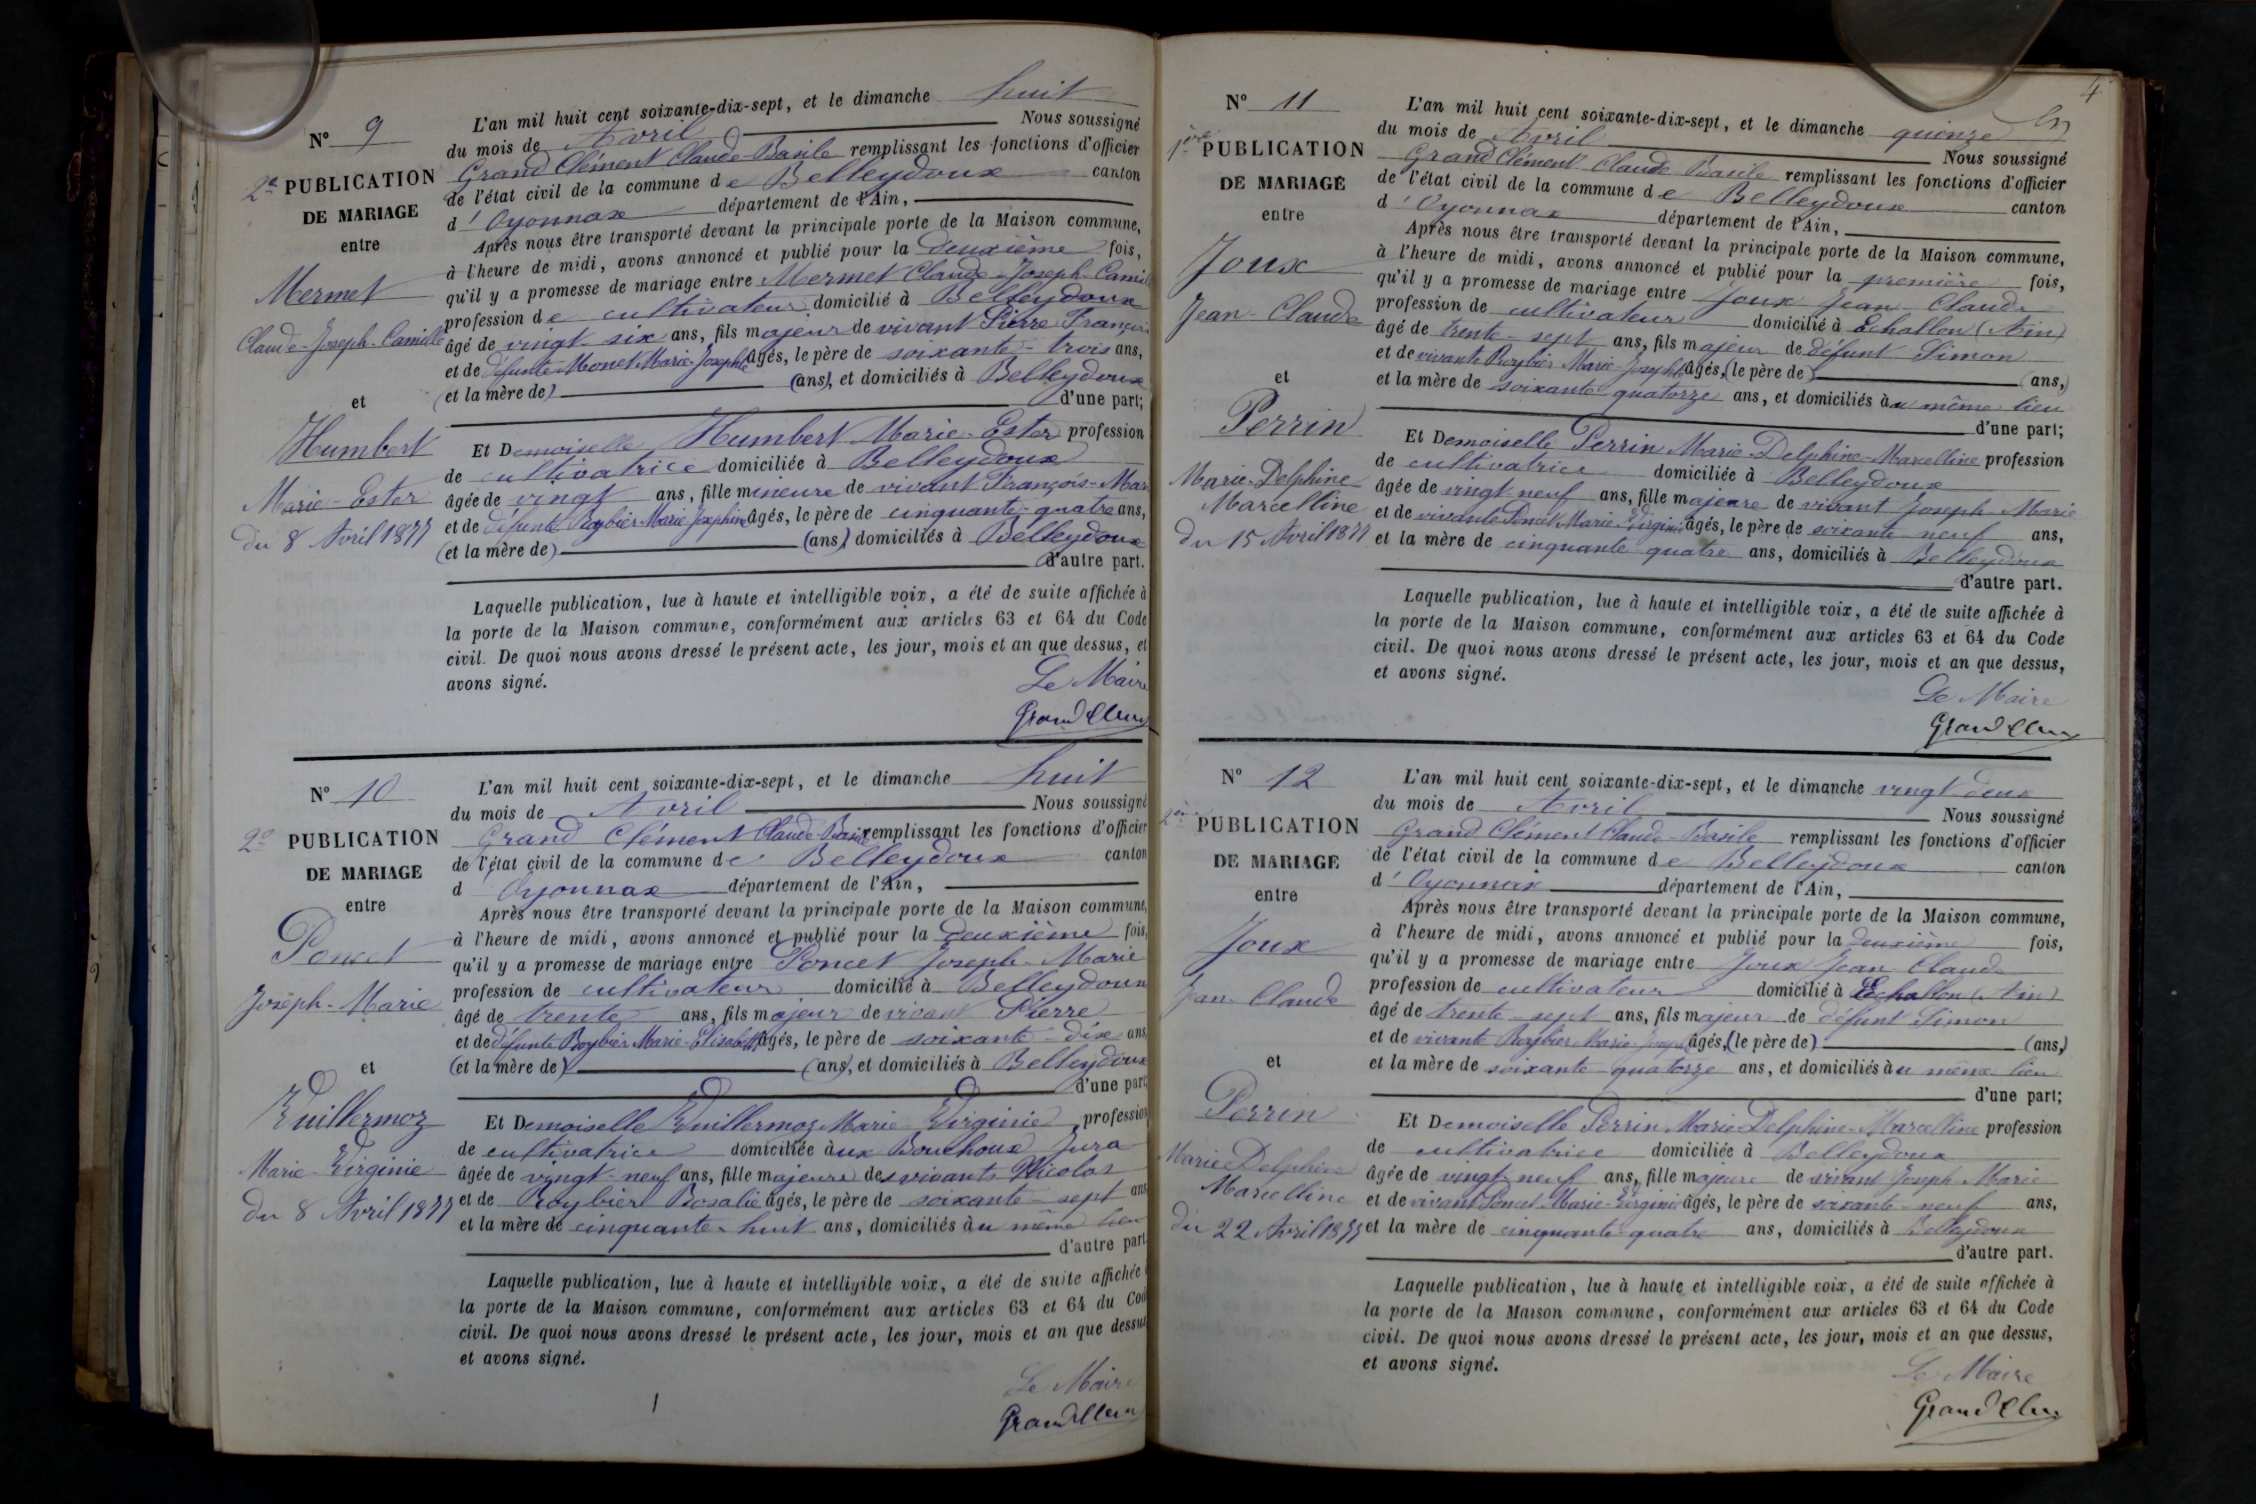 N° 9
2e PUBLICATION
DE MARIAGE
entre
Mermet
Claude-Joseph-Camille
et
Humbert
Marie-Ester
du 8 Avril 1877
L'an mil huit cent soixante-dix-sept, et le dimanche huit
du mois de Avril Nous soussigné
Grand Clément Claude-Basile remplissant les fonctions d'officier
de l'état civil de la commune de Belleydoux canton
d'Oyonnax département de l'Ain,
Après nous être transporté devant la principale porte de la Maison commune,
à l'heure de midi, avons annoncé et publié pour la deuxième fois,
qu'il y a promesse de mariage entre Mermet Claude-Joseph-Camil
profession de cultivateur domicilié à Belleydoux
âgé de vingt six ans, fils majeur de vivant Pierre François
et de défunte Monet Marie-Josephte âgés, le père de soixante-trois ans,
(et la mère de) (ans), et domiciliés à Belleydoux
d'une part;
Et Demoiselle Humbert Marie-Ester profession
de cultivatrice domiciliée à Belleydoux
âgée de vingt ans, fille mineure de vivant François-Mar
et de défunte Roybier Marie-Josephine âgés, le père de cinquante-quatre ans,
(et la mère de) (ans) domiciliés à Belleydoux
d'autre part.
Laquelle publication, lue à haute et intelligible voix, a été de suite affichée à
la porte de la Maison commune, conformément aux articles 63 et 64 du Code
civil. De quoi nous avons dressé le présent acte, les jour, mois et an que dessus, et
avons signé.
Le Maire
Grand Clem
N° 10
2e PUBLICATION
DE MARIAGE
entre
Poncet
Joseph-Marie
et
Vuillermoz
Marie-Virginie
du 8 Avril 1877
L'an mil huit cent soixante-dix-sept, et le dimanche huit
du mois de Avril Nous soussigné
Grand Clément Claude-Basile remplissant les fonctions d'officier
de l'état civil de la commune de Belleydoux canton
d Oyonnax département de l'Ain,
Après nous être transporté devant la principale porte de la Maison commune,
à l'heure de midi, avons annoncé et publié pour la deuxième fois,
qu'il y a promesse de mariage entre Poncet Joseph-Marie
profession de cultivateur domicilié à Belleydoux
âgé de trente ans, fils majeur de vivant Pierre
et de défunte Roybier Marie-Elisabeth âgés, le père de soixante-dix ans,
(et la mère de) (ans), et domiciliés à Belleydoux
d'une part;
Et Demoiselle Vuillermoz Marie Virginie profession
de cultivatrice domiciliée aux Bouchoux Jura
âgée de vingt-neuf ans, fille majeure des vivants Nicolas
et de Roybier Rosalie âgés, le père de soixante-sept ans
et la mère de cinquante-huit ans, domiciliés au même lieu
d'autre part
Laquelle publication, lue à haute et intelligible voix, a été de suite affichée
la porte de la Maison commune, conformément aux articles 63 et 64 du Cod
civil. De quoi nous avons dressé le présent acte, les jour, mois et an que dessus
et avons signé.
Le Maire
Grand Clem
4
N° 11
1ère PUBLICATION
DE MARIAGE
entre
Joux
Jean-Claude
et
Perrin
Marie-Delphine
Marcelline
du 15 Avril 1877
L'an mil huit cent soixante-dix-sept, et le dimanche quinze
du mois de Avril Nous soussigné
Grand Clément Claude Basile remplissant les fonctions d'officier
de l'état civil de la commune de Belleydoux canton
d'Oyonnax département de l'Ain,
Après nous être transporté devant la principale porte de la Maison commune,
à l'heure de midi, avons annoncé et publié pour la première fois,
qu'il y a promesse de mariage entre Joux Jean-Claude
profession de cultivateur domicilié à Echallon (Ain)
âgé de trente-sept ans, fils majeur de défunt Simon
et de vivante Roybier Marie-Josephte âgés, (le père de) (ans,)
et la mère de soixante quatorze ans, et domiciliés au même lieu
d'une part;
Et Demoiselle Perrin Marie-Delphine-Marcelline profession
de cultivatrice domiciliée à Belleydoux
âgée de vingt neuf ans, fille majeure de vivant Joseph-Marie
et de vivante Poncet Marie-Virginie âgés, le père de soixante neuf ans,
et la mère de cinquante quatre ans, domiciliés à Belleydoux
d'autre part.
Laquelle publication, lue à haute et intelligible voix, a été de suite affichée à
la porte de la Maison commune, conformément aux articles 63 et 64 du Code
civil. De quoi nous avons dressé le présent acte, les jour, mois et an que dessus,
et avons signé.
Le Maire
Grand Clem
N° 12
2ème PUBLICATION
DE MARIAGE
entre
Joux
Jean Claude
et
Perrin
Marie Delphine
Marcelline
du 22 Avril 1877
L'an mil huit cent soixante-dix-sept, et le dimanche vingt deux
du mois de Avril Nous soussigné
Grand Clément Claude-Basile remplissant les fonctions d'officier
de l'état civil de la commune de Belleydoux canton
d'Oyonnax département de l'Ain,
Après nous être transporté devant la principale porte de la Maison commune,
à l'heure de midi, avons annoncé et publié pour la deuxième fois,
qu'il y a promesse de mariage entre Joux Jean Claude
profession de cultivateur domicilié à Echallon (Ain)
âgé de trente-sept ans, fils majeur de défunt Simon
et de vivante Roybier Marie Joseph âgés, (le père de) (ans,)
et la mère de soixante quatorze ans, et domiciliés au même lieu
d'une part;
Et Demoiselle Perrin Marie Delphine Marcelline profession
de cultivatrice domiciliée à Belleydoux
âgée de vingt neuf ans, fille majeure de vivant Joseph Marie
et de vivant Poncet Marie-Virginie âgés, le père de soixante neuf ans,
et la mère de cinquante quatre ans, domiciliés à Belleydoux
d'autre part.
Laquelle publication, lue à haute et intelligible voix, a été de suite affichée à
la porte de la Maison commune, conformément aux articles 63 et 64 du Code
civil. De quoi nous avons dressé le présent acte, les jour, mois et an que dessus,
et avons signé.
Le Maire
Grand Clem